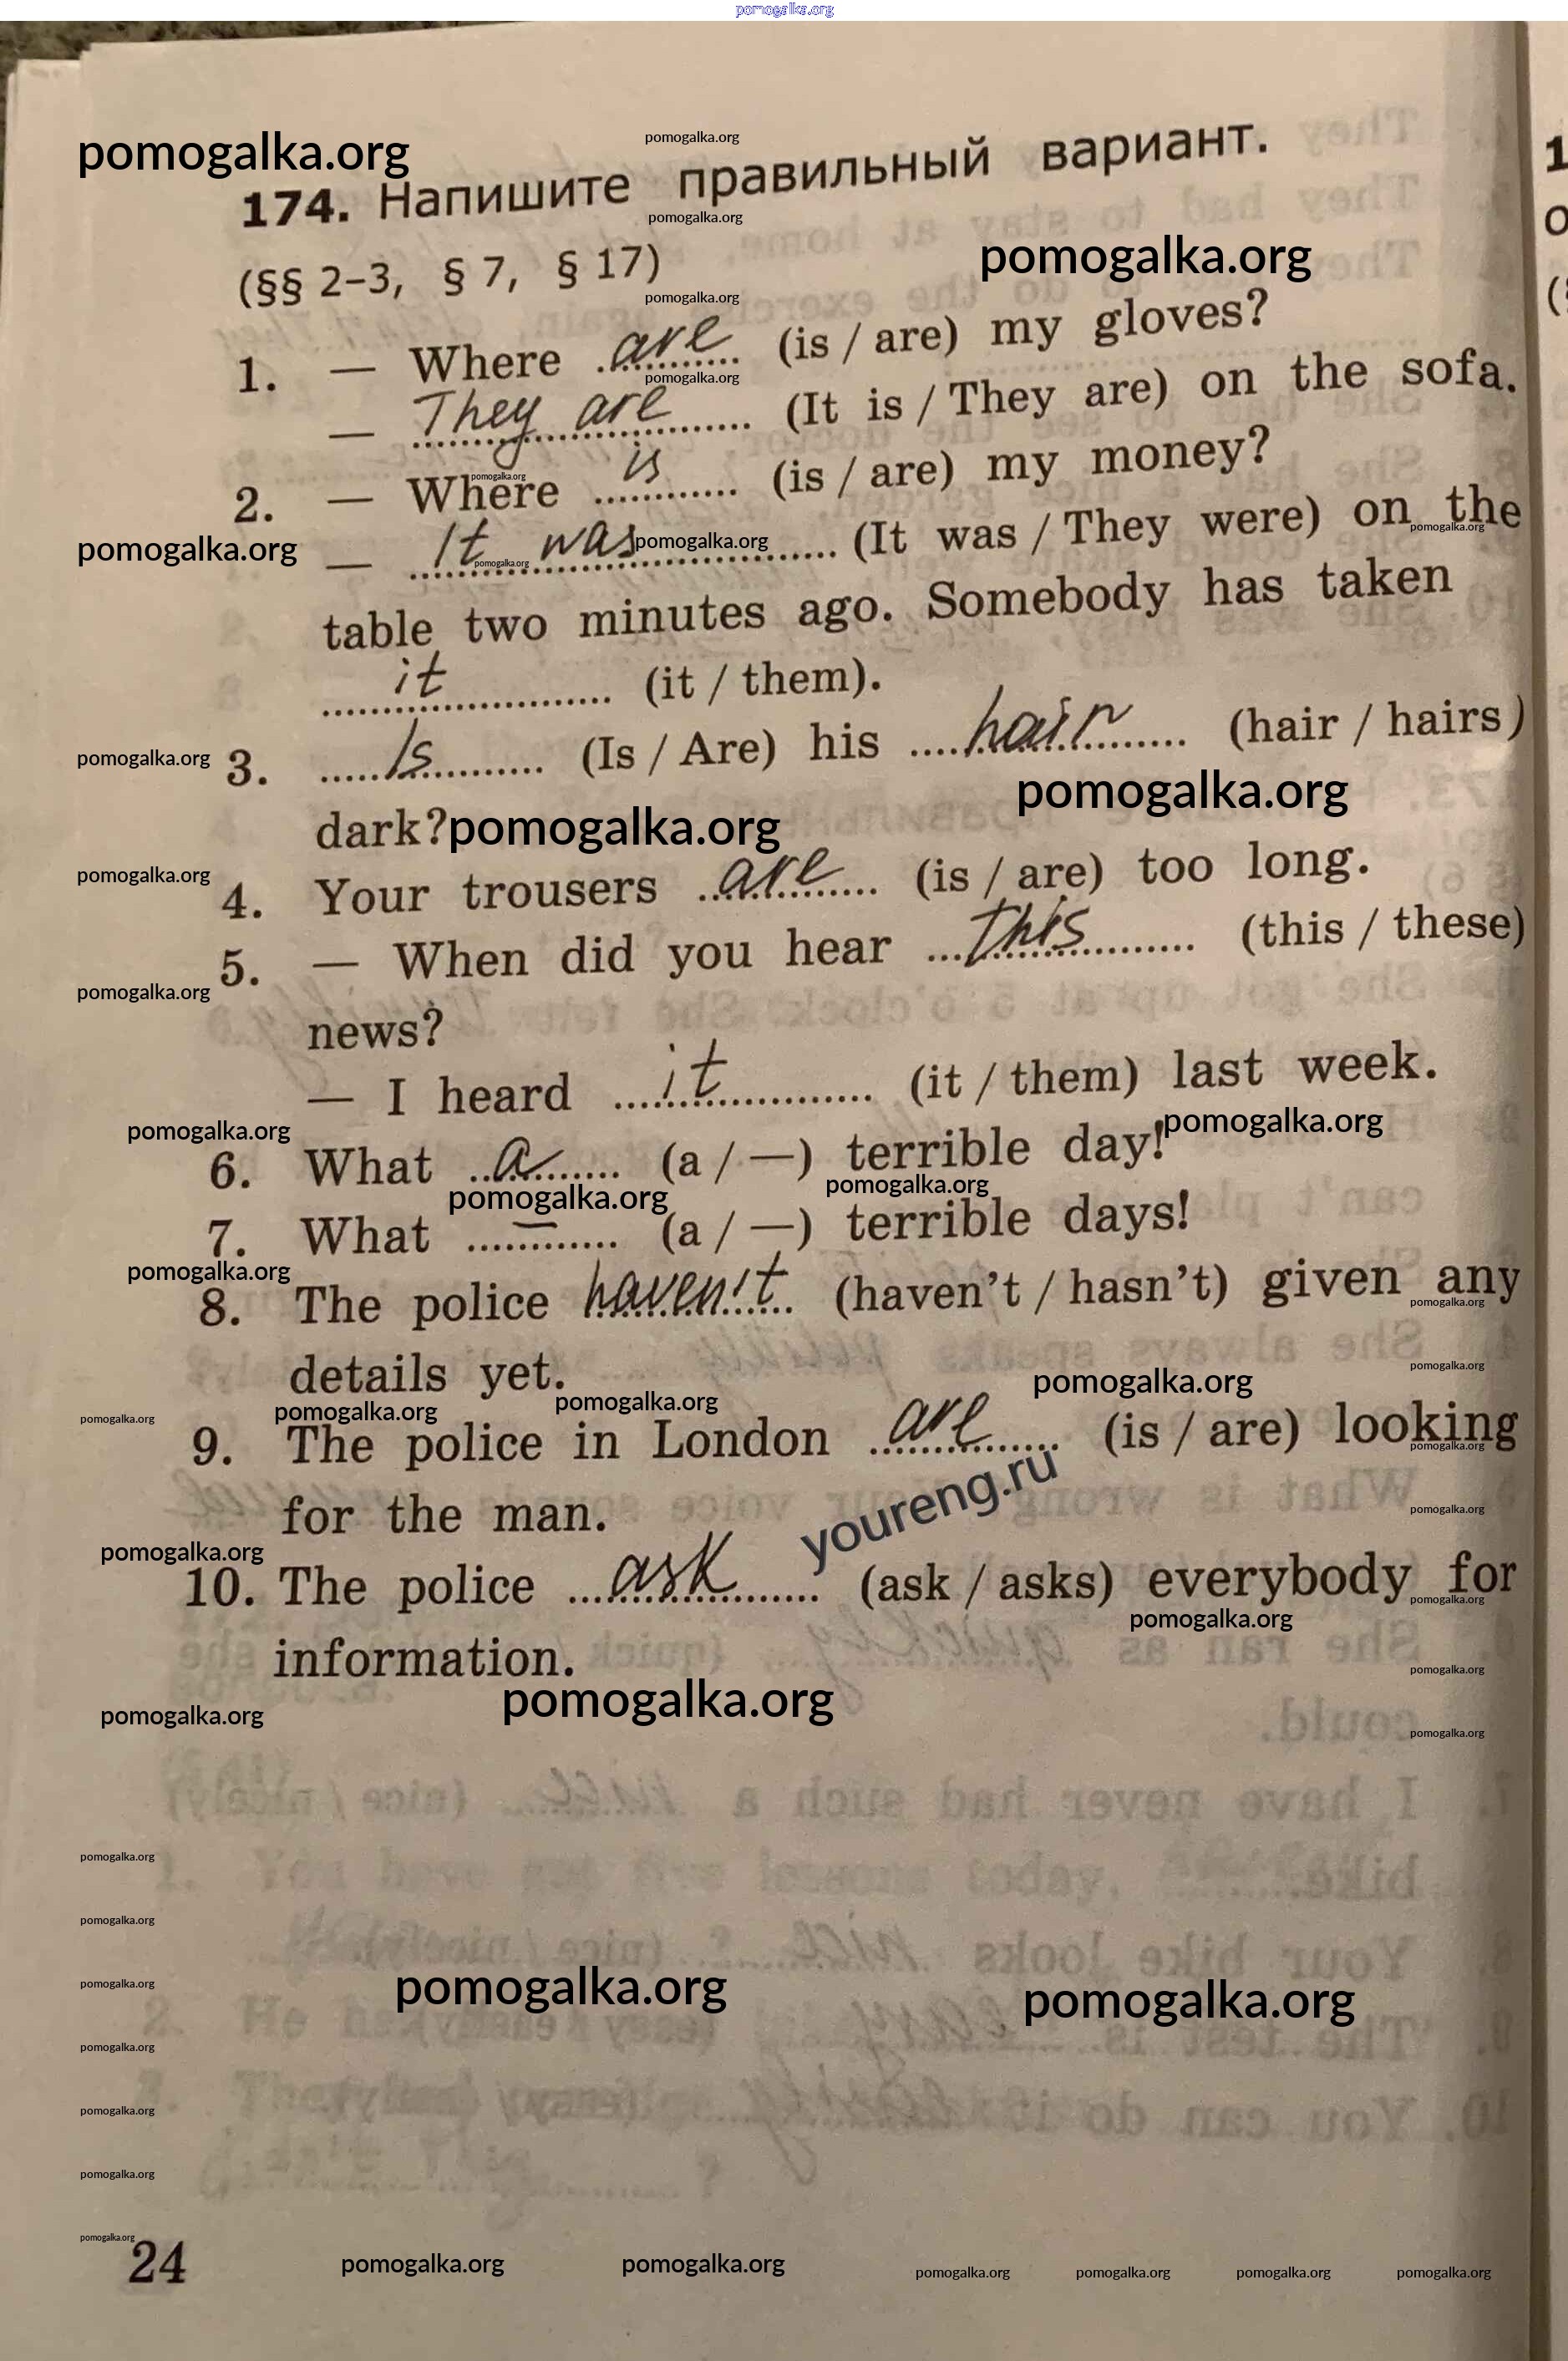 pomogalka.org
174. Напишите правильный вариант.
(§§ 2–3, § 7, § 17)
1. — Where are (is / are) my gloves?
— They are (It is / They are) on the sofa.
2. — Where is (is / are) my money?
— It was (It was / They were) on the
table two minutes ago. Somebody has taken
it (it / them).
3. Is (Is / Are) his hair (hair / hairs)
dark?
4. Your trousers are (is / are) too long.
5. — When did you hear this (this / these)
news?
— I heard it (it / them) last week.
6. What a (a / —) terrible day!
7. What — (a / —) terrible days!
8. The police haven't (haven't / hasn't) given any
details yet.
9. The police in London are (is / are) looking
for the man.
youreng.ru
10. The police ask (ask / asks) everybody for
information.
24